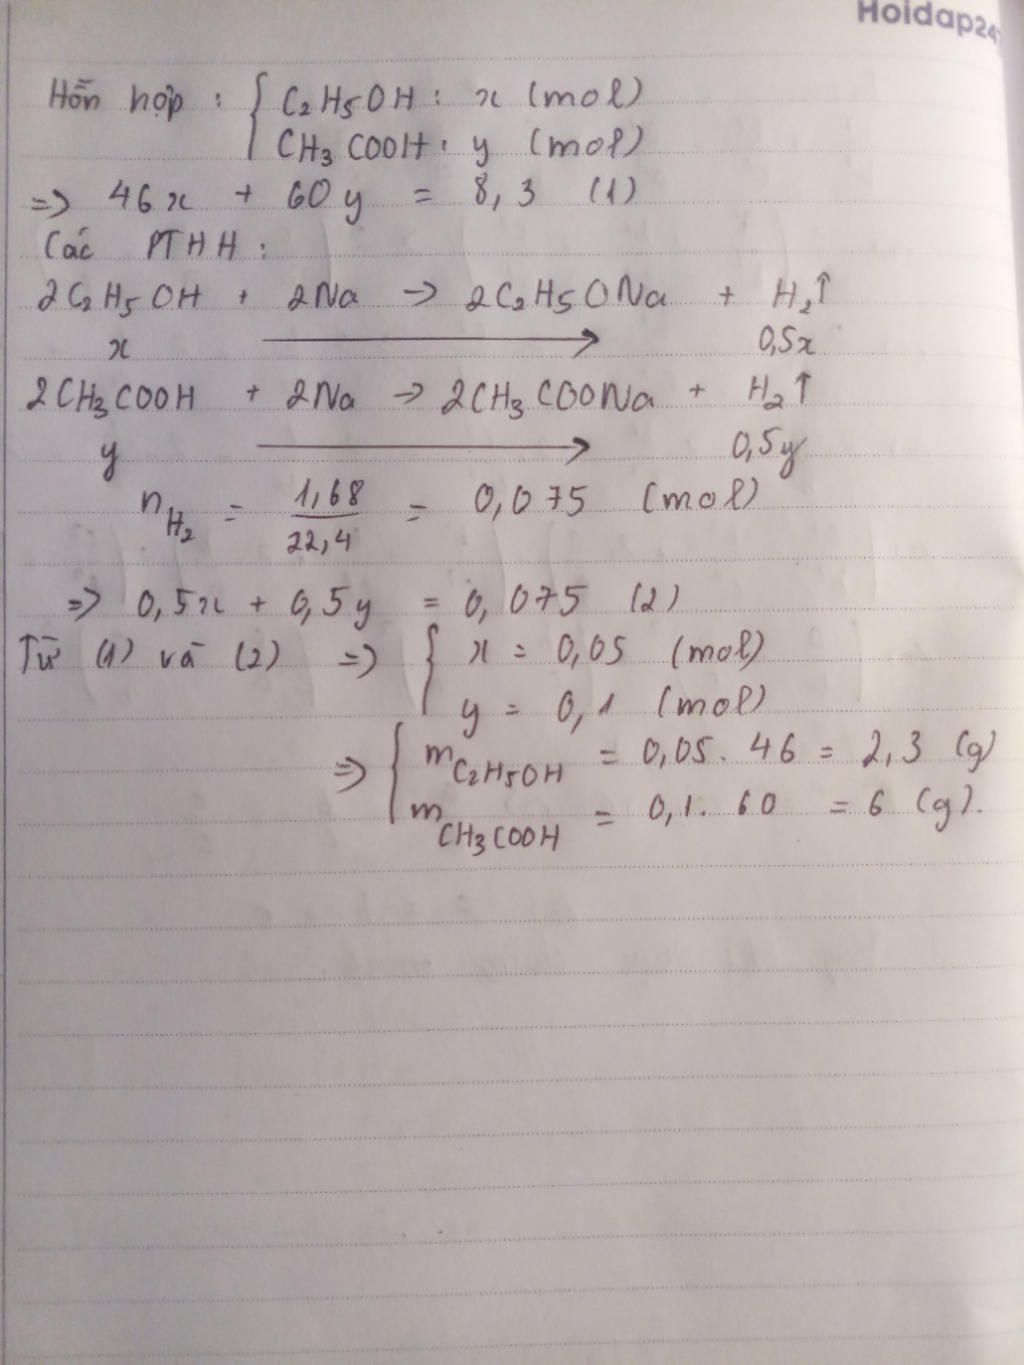 Hoidap247
Hỗn hợp : { C2H5OH : x (mol)
CH3COOH : y (mol)
=> 46x + 60y = 8,3 (1)
Các PTHH :
2C2H5OH + 2Na -> 2C2H5ONa + H2↑
x ⟶ 0,5x
2CH3COOH + 2Na -> 2CH3COONa + H2↑
y ⟶ 0,5y
nH2 = 1,68/22,4 = 0,075 (mol)
=> 0,5x + 0,5y = 0,075 (2)
Từ (1) và (2) => { x = 0,05 (mol)
y = 0,1 (mol)
=> { mC2H5OH = 0,05. 46 = 2,3 (g)
mCH3COOH = 0,1. 60 = 6 (g).